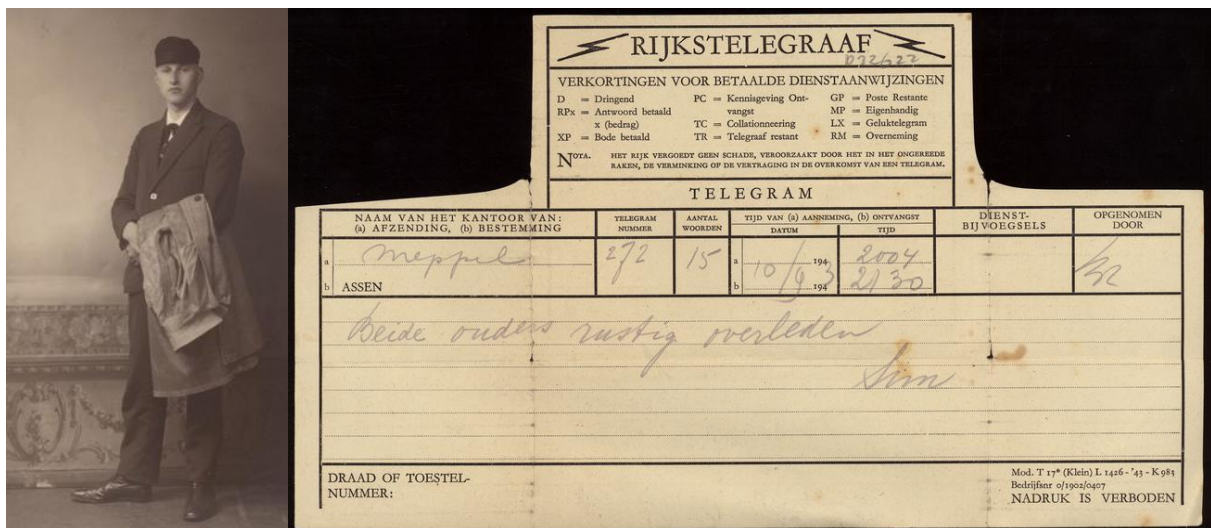 RIJKSTELEGRAAF
VERKORTINGEN VOOR BETAALDE DIENSTAANWIJZINGEN
D = Dringend
RPx = Antwoord betaald
x (bedrag)
XP = Bode betaald
PC = Kennisgeving Ont-
vangst
TC = Collationneering
TR = Telegraaf restant
GP = Poste Restante
MP = Eigenhandig
LX = Geluktelegram
RM = Overneming
NOTA. HET RIJK VERGOEDT GEEN SCHADE, VEROORZAAKT DOOR HET IN HET ONGEREEDE
RAKEN, DE VERMINKING OF DE VERTRAGING IN DE OVERKOMST VAN EEN TELEGRAM.
TELEGRAM
NAAM VAN HET KANTOOR VAN:
(a) AFZENDING, (b) BESTEMMING
TELEGRAM
NUMMER
AANTAL
WOORDEN
TIJD VAN (a) AANNEMING, (b) ONTVANGST
DATUM
TIJD
DIENST-
BIJVOEGSELS
OPGENOMEN
DOOR
a Meppel
272
15
a 10/9 194
2004
b ASSEN
b 1943
2130
Beide ouders rustig overleden
DRAAD OF TOESTEL-
NUMMER:
Mod. T 17* (Klein) L 1426 - '43 - K 983
Bedrijfsnr 0/1902/0407
NADRUK IS VERBODEN